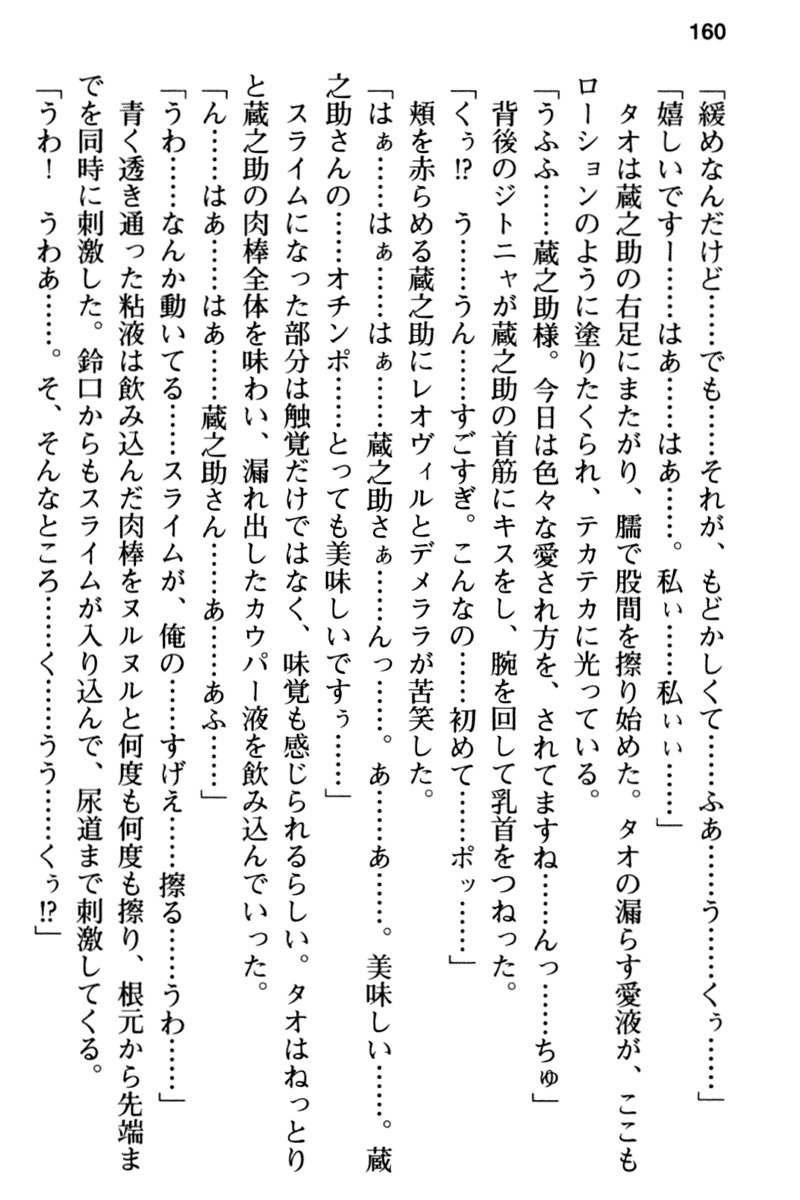 160
「緩めなんだけど……でも……それが、もどかしくて……ふあ……う……くぅ……」
「嬉しいですー……はあ……はあ……。私ぃ……私ぃぃ……」
　タオは蔵之助の右足にまたがり、臑で股間を擦り始めた。タオの漏らす愛液が、ここも
ローションのように塗りたくられ、テカテカに光っている。
「うふふ……蔵之助様。今日は色々な愛され方を、されてますね……んっ……ちゅ」
　背後のジトニャが蔵之助の首筋にキスをし、腕を回して乳首をつねった。
「くぅ!?　う……うん……すごすぎ。こんなの……初めて……ポッ……」
　頬を赤らめる蔵之助にレオヴィルとデメララが苦笑した。
「はぁ……はぁ……はぁ……蔵之助さぁ……んっ……。あ……あ……。美味しい……。蔵
之助さんの……オチンポ……とっても美味しいですぅ……」
　スライムになった部分は触覚だけではなく、味覚も感じられるらしい。タオはねっとり
と蔵之助の肉棒全体を味わい、漏れ出したカウパー液を飲み込んでいった。
「ん……はあ……はあ……蔵之助さん……あ……あふ……」
「うわ……なんか動いてる……スライムが、俺の……すげえ……擦る……うわ……」
　青く透き通った粘液は飲み込んだ肉棒をヌルヌルと何度も何度も擦り、根元から先端ま
でを同時に刺激した。鈴口からもスライムが入り込んで、尿道まで刺激してくる。
「うわ！　うわあ……。そ、そんなところ……く……うう……くぅ!?」